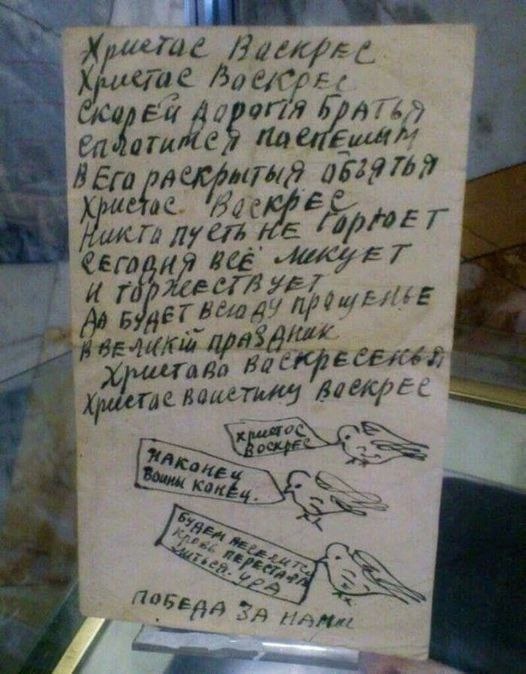 Христас Васкрес
Христас Васкрес
Скарей дарогiя Братья
сплотимся паспешым
В Его раскрытыя обзятья
Христос Васкрес
Никта пусть не гарюет
сегодня всё ликует
и торжествует
Да будет всюду прощенье
в великiй праздник
Христаво Васкресенья
Христас ваистину Васкрес
христос
Воскрес
Наконец
Воины конец.
Будем
кровь переста
литься. ура
победа за нами